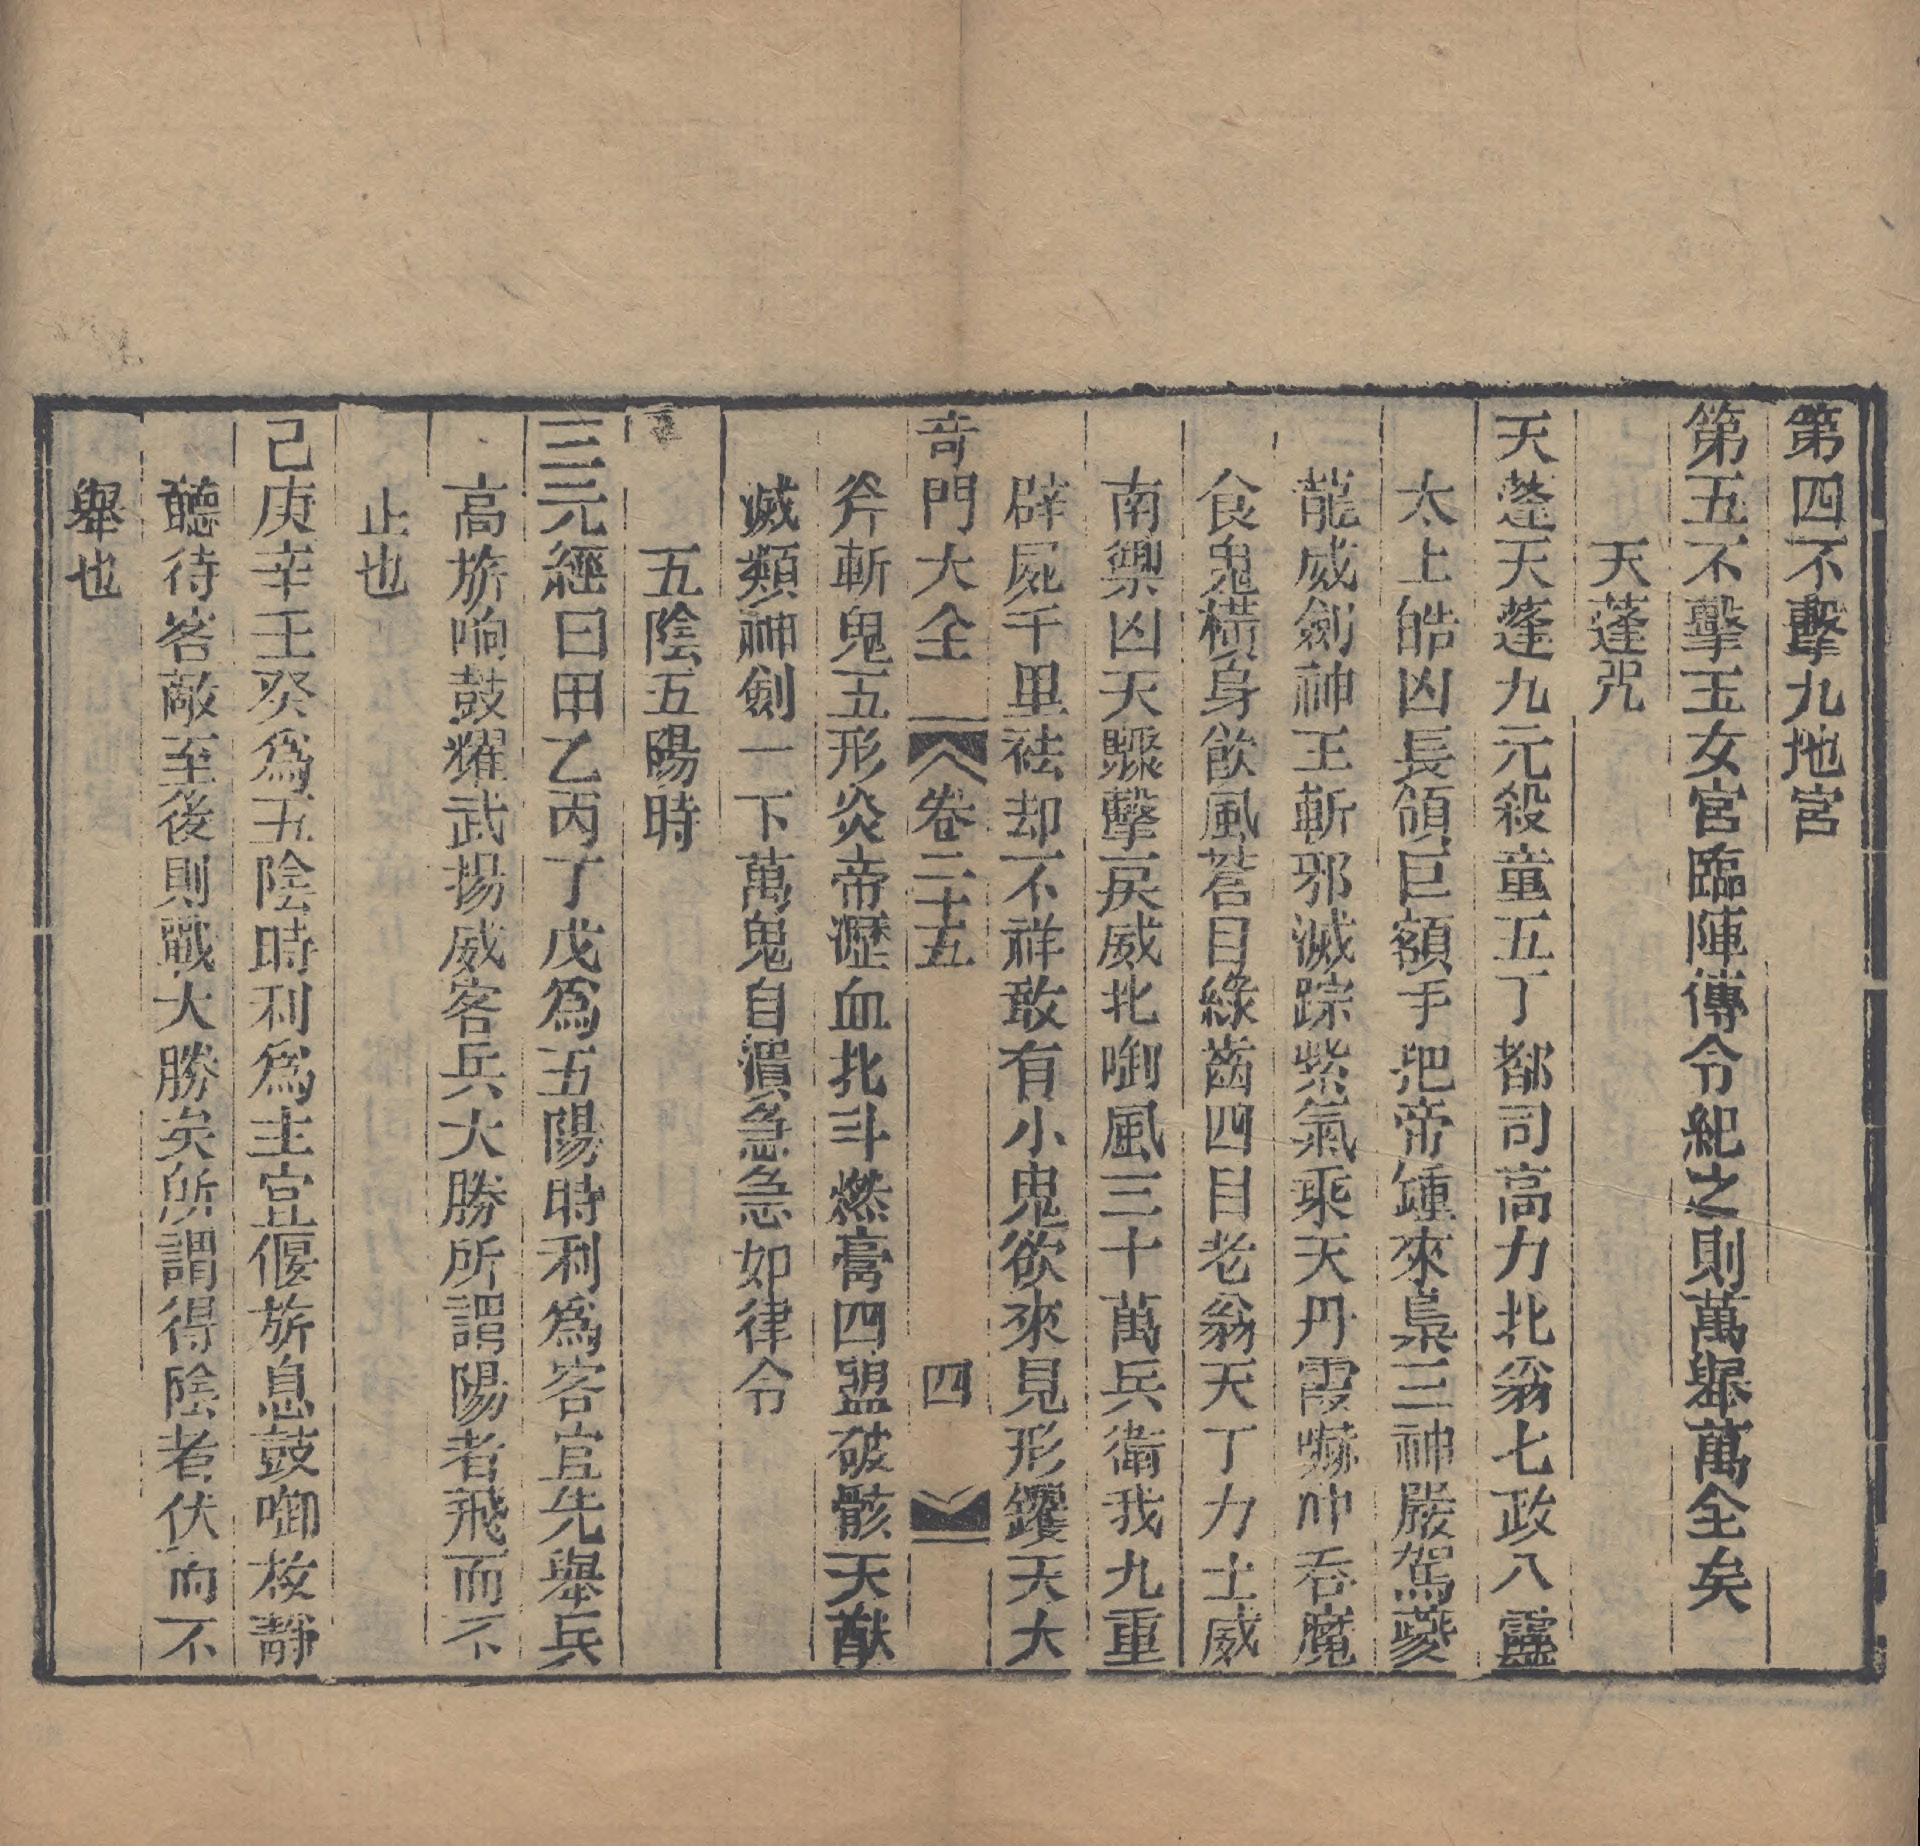 第四不擊九地宮
第五不擊玉女宮臨陣傳令紀之則萬舉萬全矣
天蓬咒
天蓬天蓬九元殺童五丁都司高力北翁七政八靈
太上皓凶長頜巨額手把帝鍾來梟三神嚴駕夔
龍威劍神王斬邪滅踪紫氣乘天丹霞嚇冲吞魔
食鬼橫身飲風蒼目綠齒四目老翁天丁力士威
南禦凶天騶擊戾威北啣風三十萬兵衛我九重
辟屍千里祛却不祥敢有小鬼欲來見形钁天大
奇門大全 卷二十五 四
斧斬鬼五形炎帝瀝血北斗燃膏四盟破骸天猷
滅類神劍一下萬鬼自潰急急如律令
五陰五陽時
三元經曰甲乙丙丁戊為五陽時利為客宜先舉兵
高旂响鼓耀武揚威客兵大勝所謂陽者飛而不
止也
己庚辛壬癸為五陰時利為主宜偃旂息鼓啣枚靜
聽待客敵至後則戰大勝矣所謂得陰者伏而不
舉也